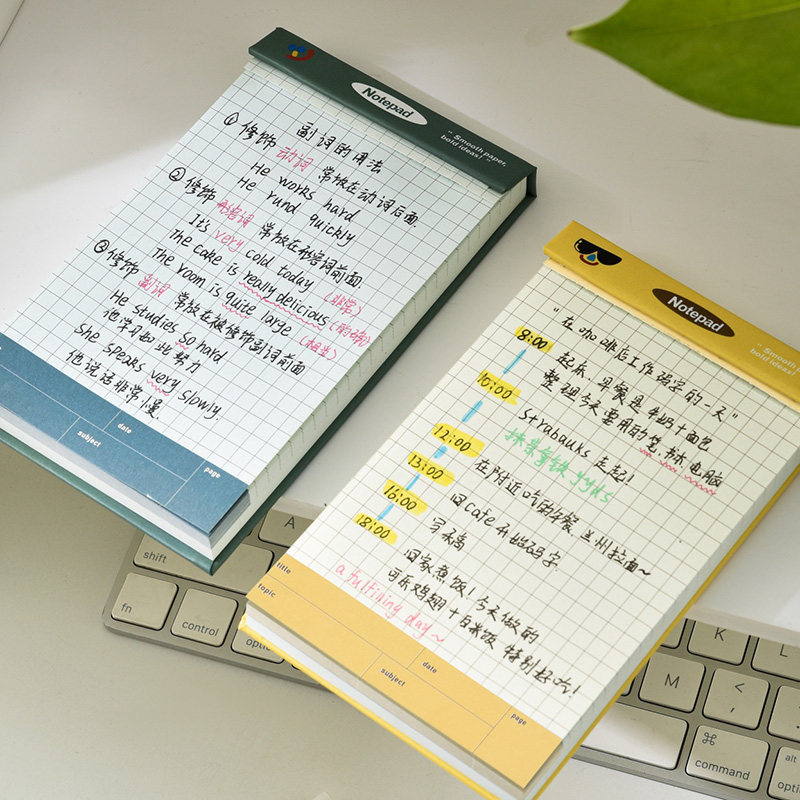 Notepad
" Smooth paper,
bold ideas! "
副词的用法
① 修饰 动词 常放在动词后面.
He works hard
He rund quickly
② 修饰 形容词 常放在形容词前面.
It's very cold today (非常)
The cake is really delicious (的确)
The room is quite large (相当)
③ 修饰 副词 常放在被修饰副词前面
He studies so hard
他学习如此努力
She speaks very slowly.
他说话非常慢.
subject
date
page
Notepad
" Smooth pa
bold ideas!
"在咖啡店工作码字的一天"
8:00 起床 早餐是牛奶+面包
整理今天要用的笔.书本.电脑
10:00 Strabauks 走起!
抹茶拿铁 yyds
12:00 在附近吃的午餐 兰州拉面~
13:00 回cafe开始码字
16:00
18:00 回家煮饭!今天做的
可乐鸡翅+白米饭 特别好吃!
a fulfilling day~
title
topic
subject
date
page
A
shift
fn
control
option
K
L
M
<
,
⌘
command
alt